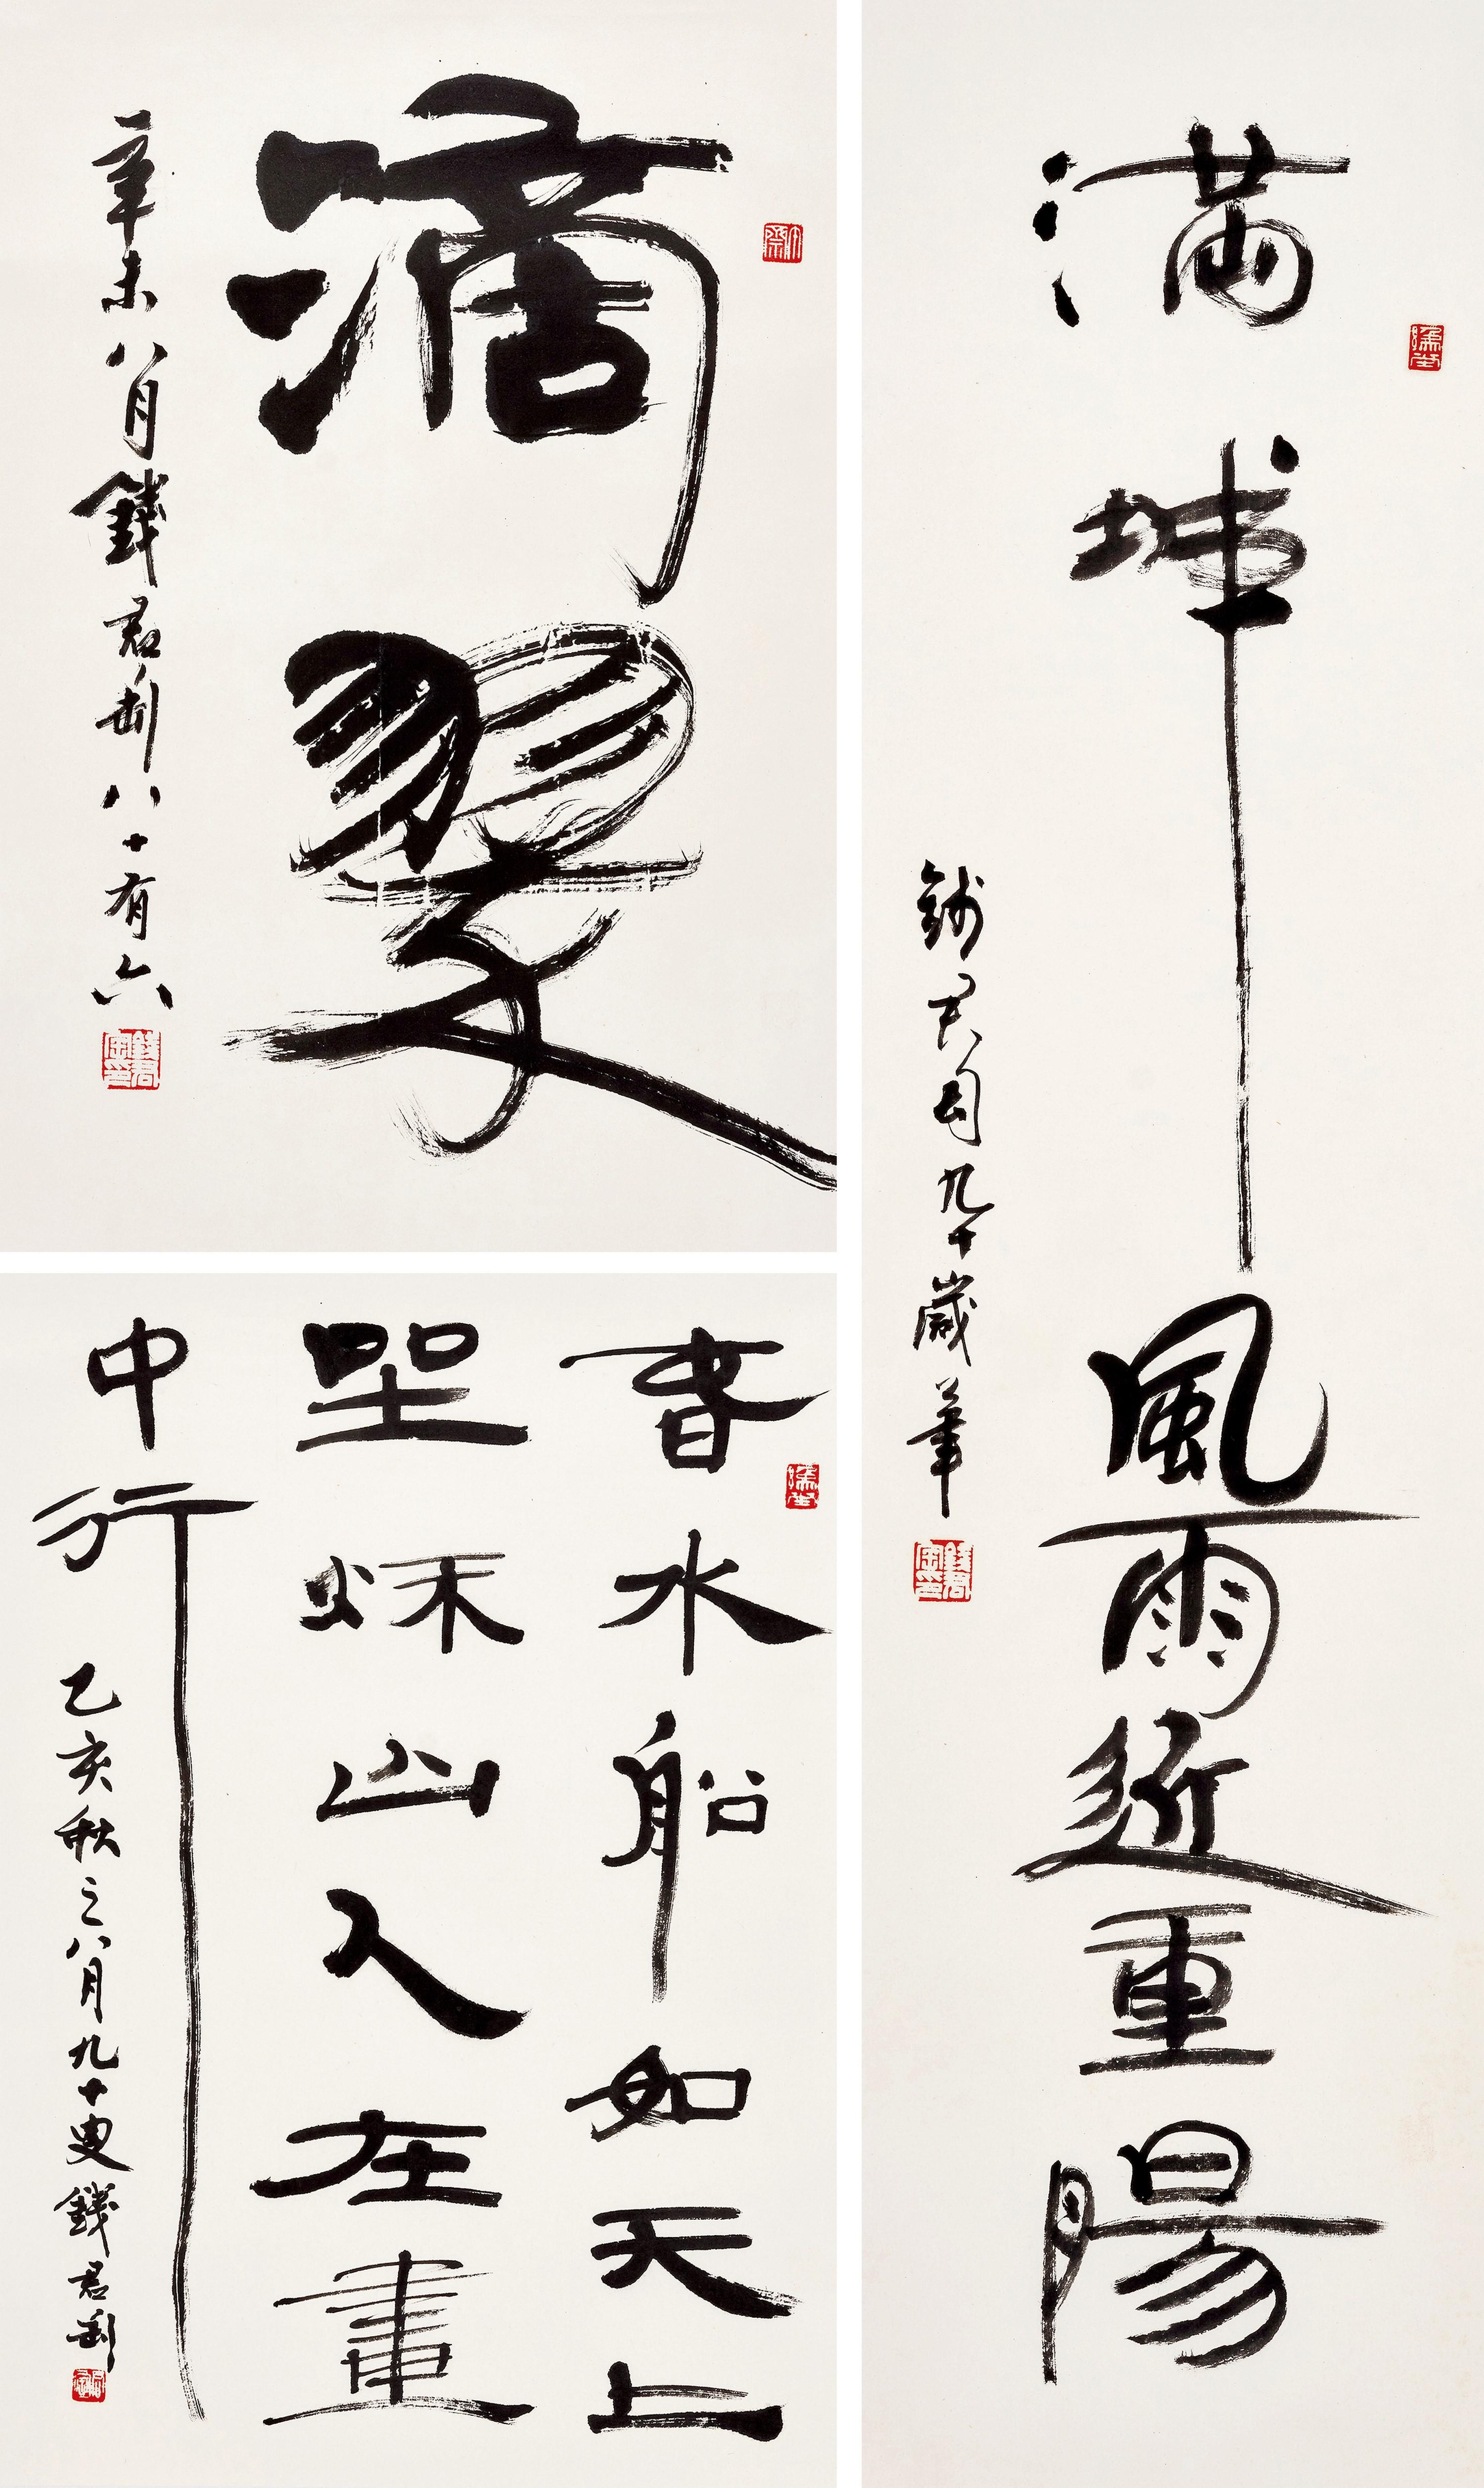 滴翠
辛未八月錢君匋八十有六
春水船如天上
坐秋山人在畫
中行
乙亥秋之八月九十叟錢君匋
满城風雨近重陽
錢君匋九十歲筆